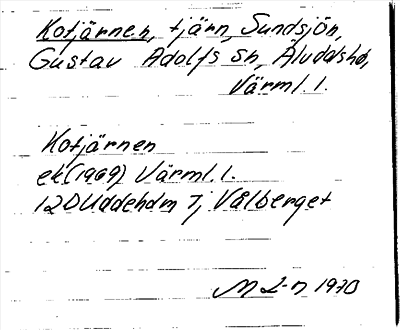 Kotjärnen, tjärn, Sundsjön,
Gustav Adolfs sn, Älvdalshd,
Värml. l.
Kotjärnen
ek (1969) Värml. l.
12D Uddeholm 7j Vålberget
1970